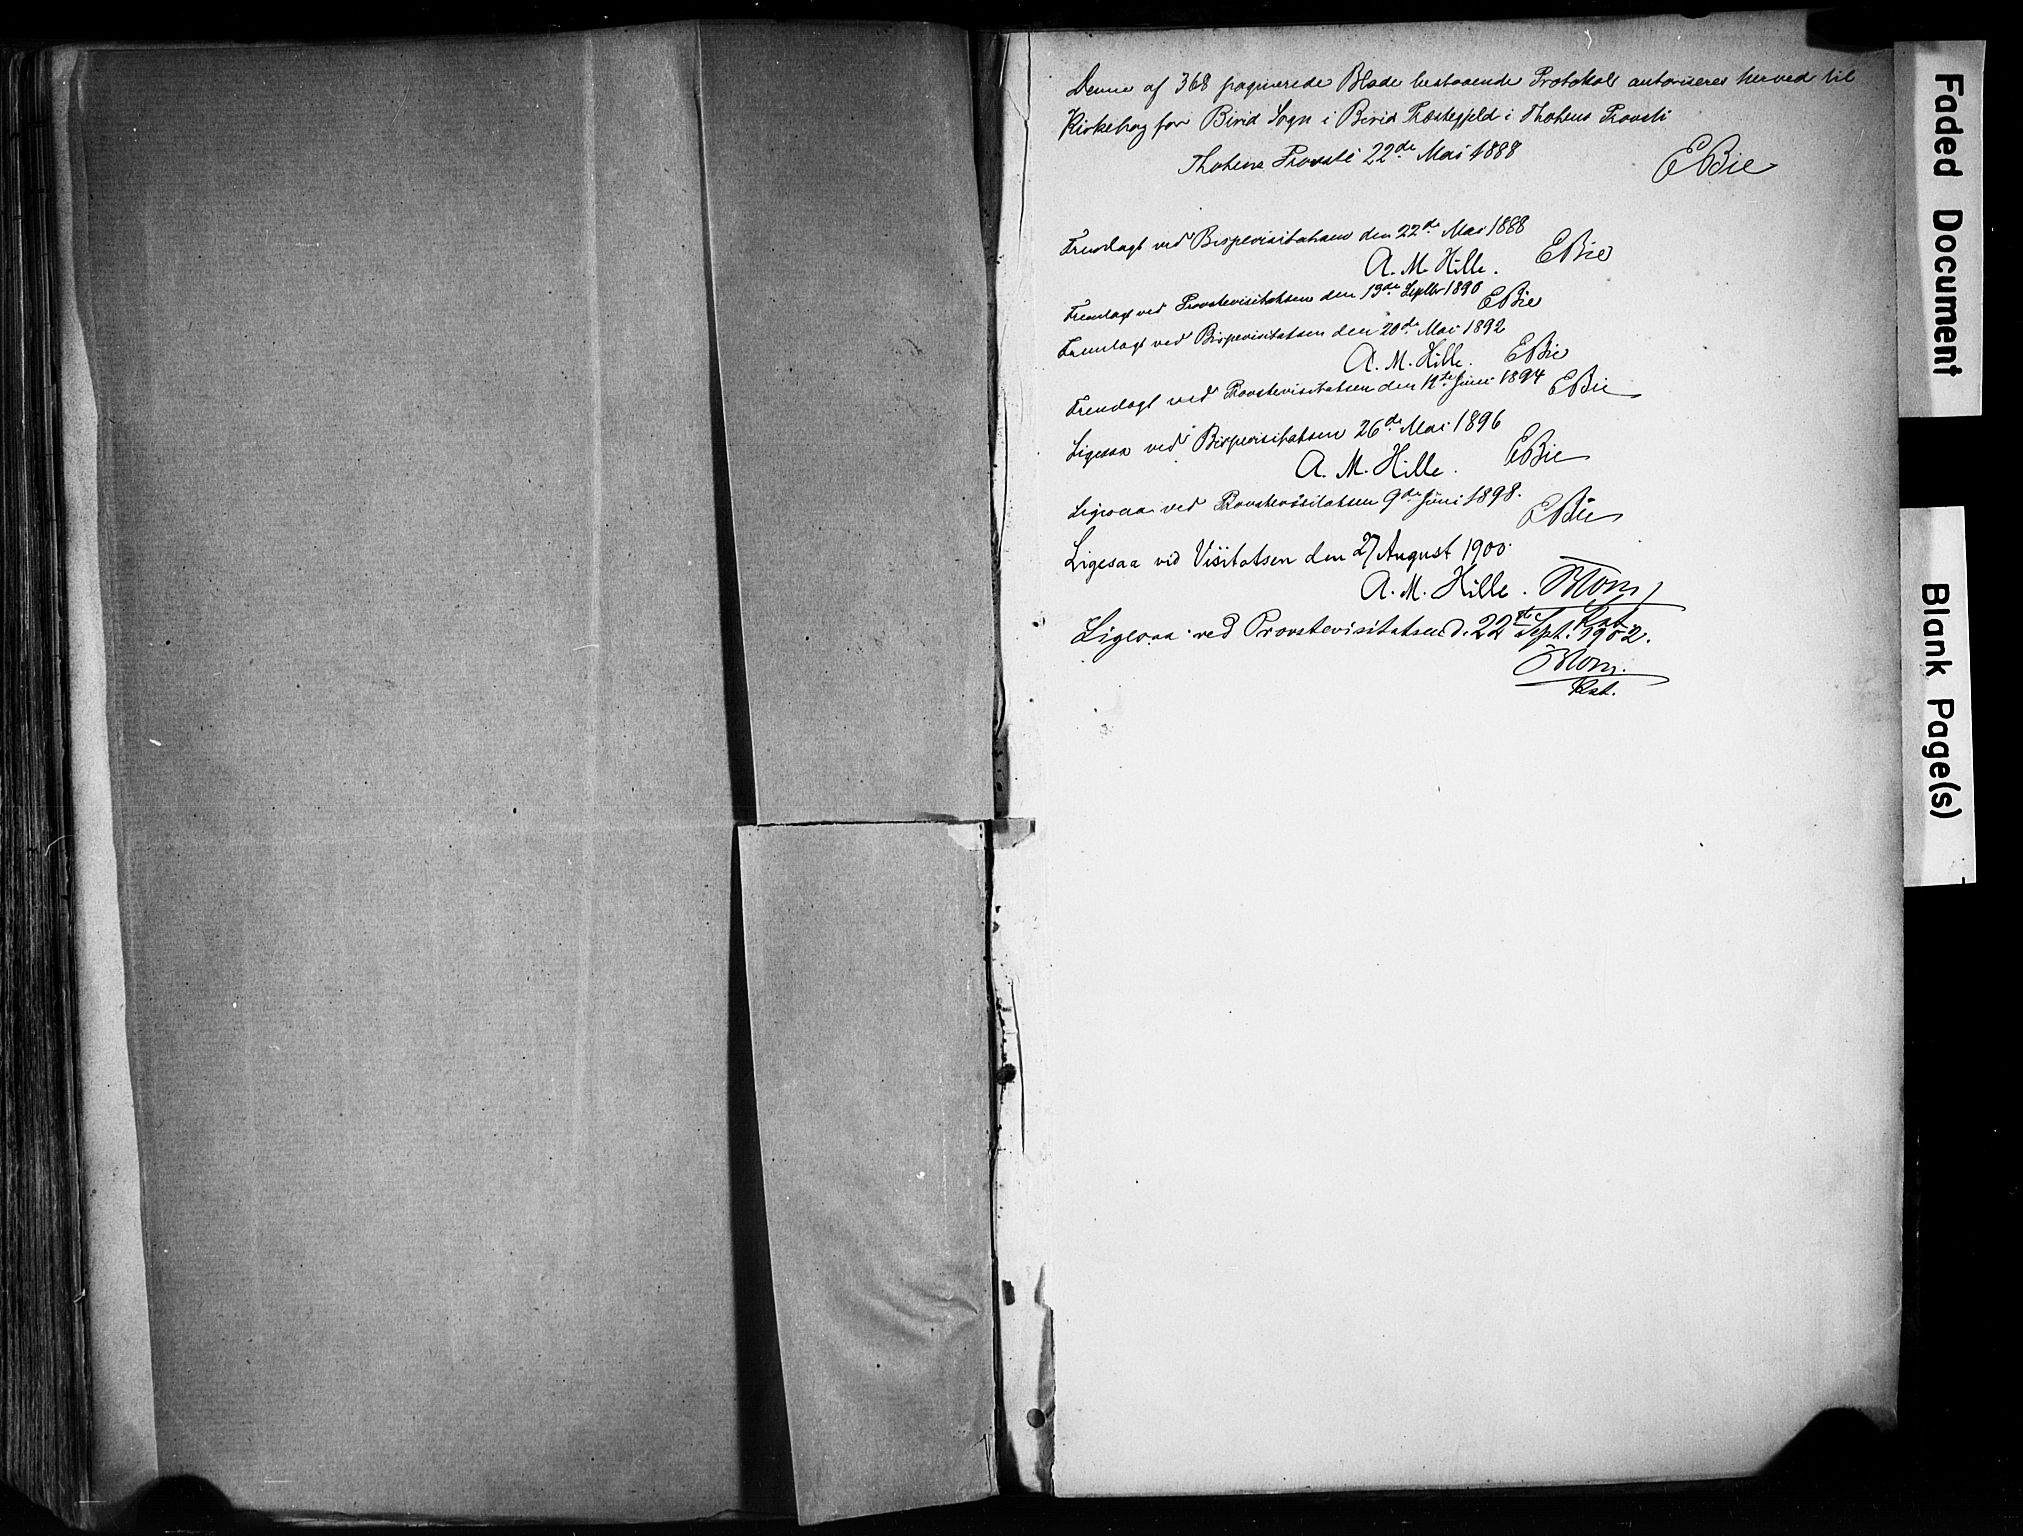 Denne af 368 paginerede Blade bestaaende Protokol autoriseres herved til
Kirkebog for Birid Sogn i Birid Præstegjeld i Thotens Provsti
Thotens Provsti 22de Mai 1888
EBie
Fremlagt ved Bispevisitatsen den 22de Mai 1888
A. M. Hille. EBie
Fremlagt ved Provstevisitatsen den 13de Septbr 1890 EBie
Fremlagt ved Bispevisitatsen den 20de Mai 1892
A. M. Hille. EBie
Fremlagt ved Provstevisitatsen den Juni 1894 EBie
Ligesaa ved Bispevisitatsen 26de Mai 1896
A. M. Hille. EBie
Ligesaa ved Provstevisitatsen 9de Juni 1898.
EBie
Ligesaa ved Visitatsen den 27 August 1900.
A. M. Hille.
Kst.
Ligesaa ved Provstevisitatsen d. 22de Sept. 1902.
Kst.
Faded Document
Blank Page(s)